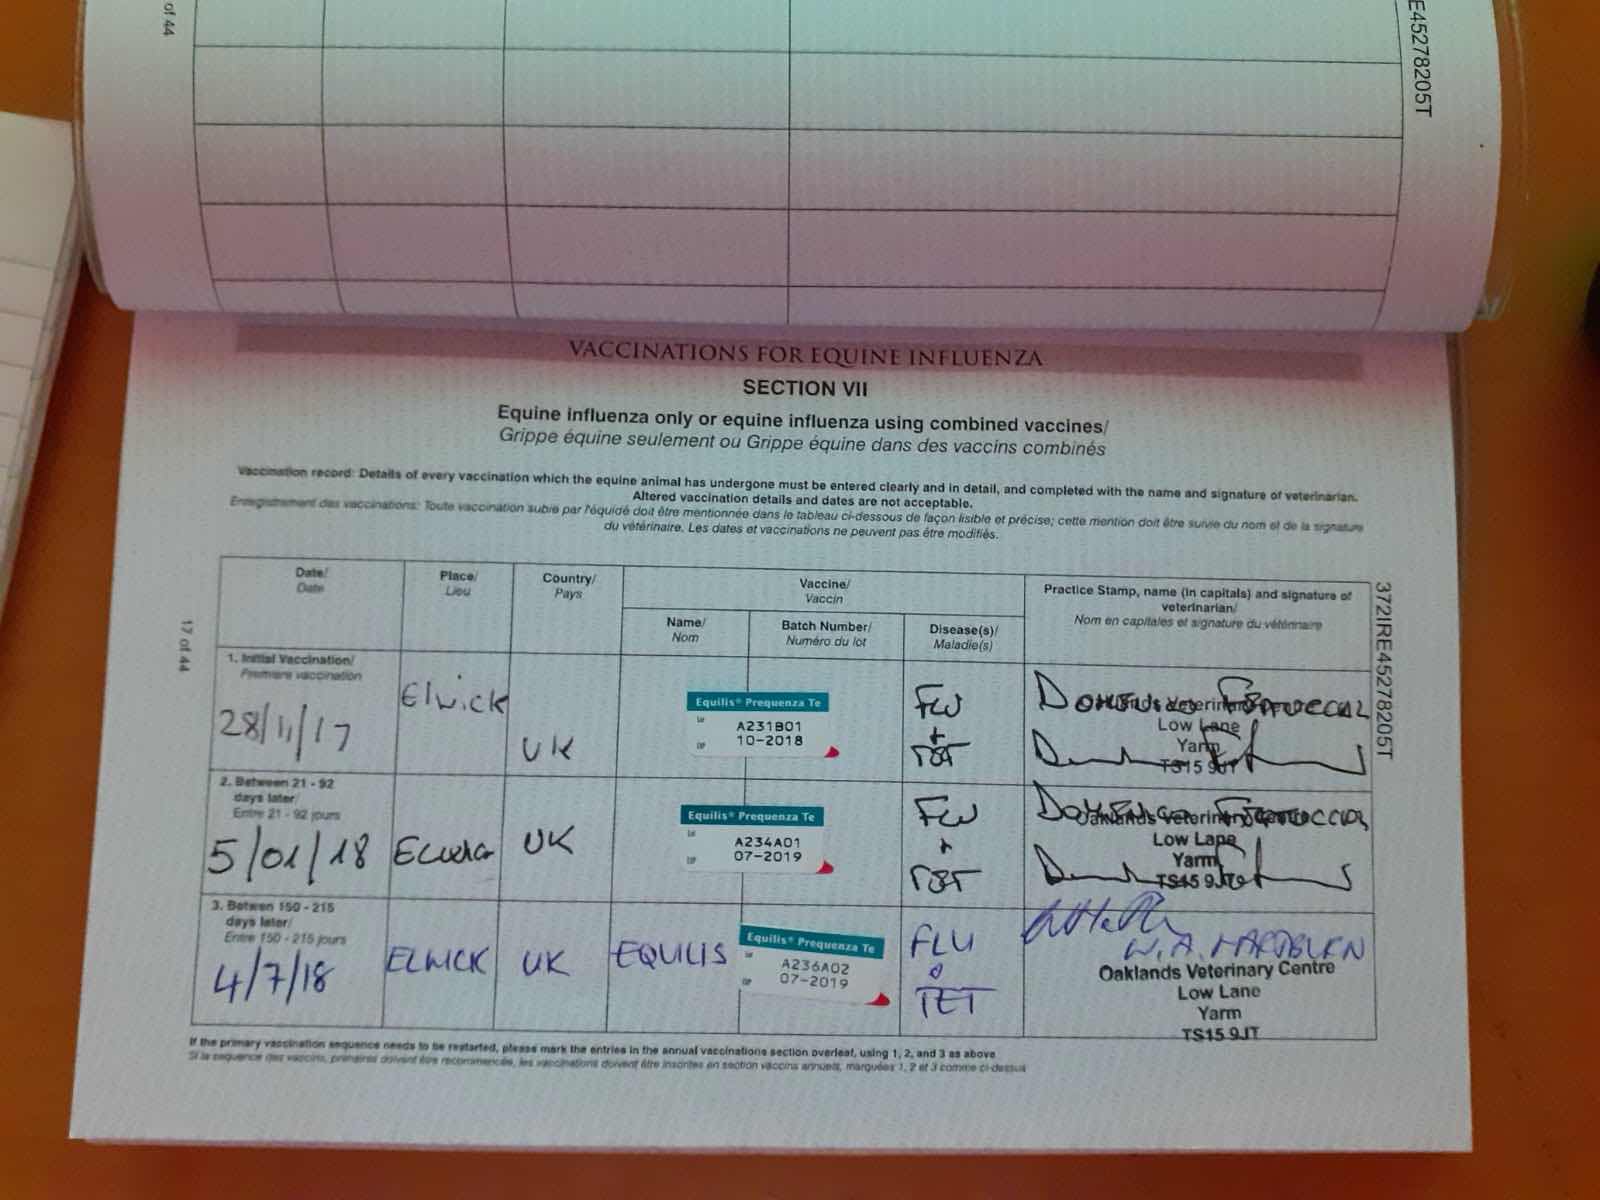 of 44
E45278205T
VACCINATIONS FOR EQUINE INFLUENZA
SECTION VII
Equine influenza only or equine influenza using combined vaccines/
Grippe équine seulement ou Grippe équine dans des vaccins combinés
Vaccination record: Details of every vaccination which the equine animal has undergone must be entered clearly and in detail, and completed with the name and signature of veterinarian.
Altered vaccination details and dates are not acceptable.
Enregistrement des vaccinations: Toute vaccination subie par l'équidé doit être mentionnée dans le tableau ci-dessous de façon lisible et précise; cette mention doit être suivie du nom et de la signature
du vétérinaire. Les dates et vaccinations ne peuvent pas être modifiés.
17 of 44
372IRE45278205T
Date/
Date
Place/
Lieu
Country/
Pays
Vaccine/
Vaccin
Name/
Nom
Batch Number/
Numéro du lot
Disease(s)/
Maladie(s)
Practice Stamp, name (in capitals) and signature of
veterinarian/
Nom en capitales et signature du vétérinaire
1. Initial Vaccination/
Première vaccination
28/11/17
Elwick
UK
Equilis® Prequenza Te
Lot
A231B01
EXP
10-2018
FLU
+
TET
Low Lane
Yarm
TS15 9JT
2. Between 21 - 92
days later/
Entre 21 - 92 jours
5/01/18
UK
Equilis® Prequenza Te
Lot
A234A01
EXP
07-2019
FLU
+
TET
Oaklands Veterinary Centre
Low Lane
Yarm
TS15 9JT
3. Betwen 150 - 215
days later/
Entre 150 - 215 jours
4/7/18
ELWICK
UK
EQUILIS
Equilis® Prequenza Te
Lot
A236A02
EXP
07-2019
FLU
&
TET
W.A. HARDBURN
Oaklands Veterinary Centre
Low Lane
Yarm
TS15 9JT
If the primary vaccination sequence needs to be restarted, please mark the entries in the annual vaccinations section overleaf, using 1, 2, and 3 as above
Si la sequence des vaccins, primaires doivent être recommencés, les vaccinations doivent être inscrites en section vaccins annuels, marquées 1, 2 et 3 comme ci-dessus